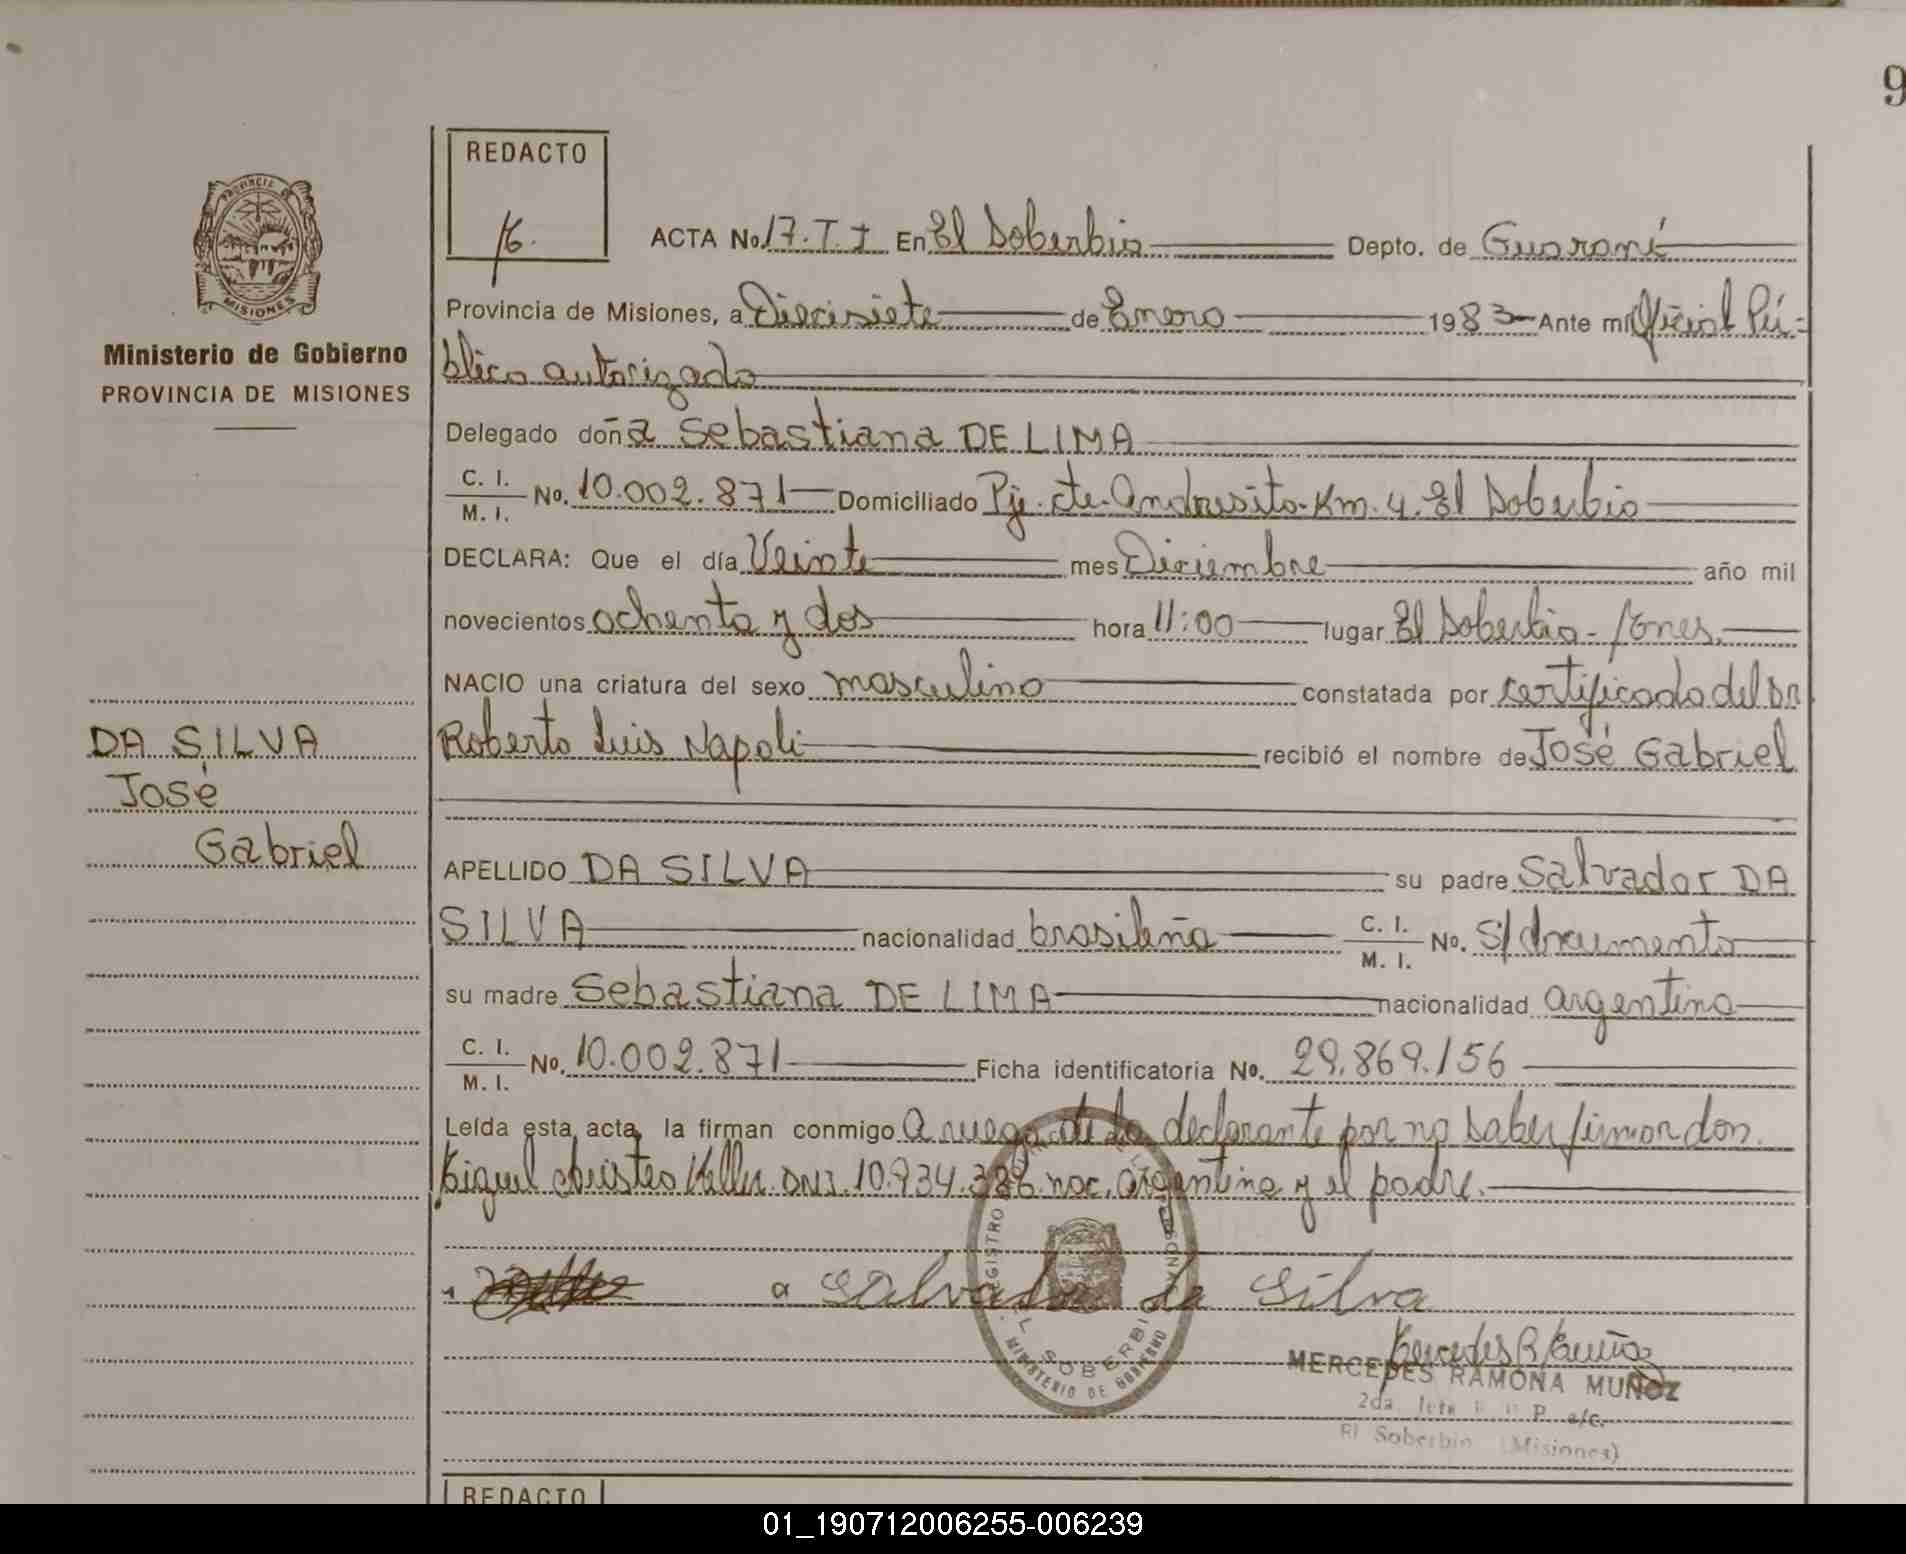 9
REDACTO
16.
PROVINCIA DE
MISIONES
Ministerio de Gobierno
PROVINCIA DE MISIONES
DA SILVA
José
Gabriel
ACTA No. 17. T. I En El Soberbio Depto. de Guaraní
Provincia de Misiones, a Diecisiete de Enero 1983 Ante mi Oficial Pú-
blico autorizado
Delegado doña Sebastiana DE LIMA
C. I. / M. I. No. 10.002.871 Domiciliado Pje. Cte. Andresito-Km. 4. El Soberbio
DECLARA: Que el día Veinte mes Diciembre año mil
novecientos ochenta y dos hora 11:00 lugar El Soberbio-
NACIO una criatura del sexo masculino constatada por certificado del Dr
Roberto Luis Napoli recibió el nombre de José Gabriel
APELLIDO DA SILVA su padre Salvador DA
SILVA nacionalidad brasileña C. I. / M. I. No. s/documento
su madre Sebastiana DE LIMA nacionalidad argentina
C. I. / M. I. No. 10.002.871 Ficha identificatoria No. 29.869.156
Leída esta acta, la firman conmigo A ruego de la declarante por no saber firmar don
Keller DNI. 10.934.386 nac. argentina y el padre.
a Salvador da Silva
REGISTRO
EL SOBERBIO
MINISTERIO DE GOBIERNO
Mercedes R Muñoz
MERCEDES RAMONA MUÑOZ
2da. P. a/c.
El Soberbio (Misiones)
REDACTO
01_190712006255-006239